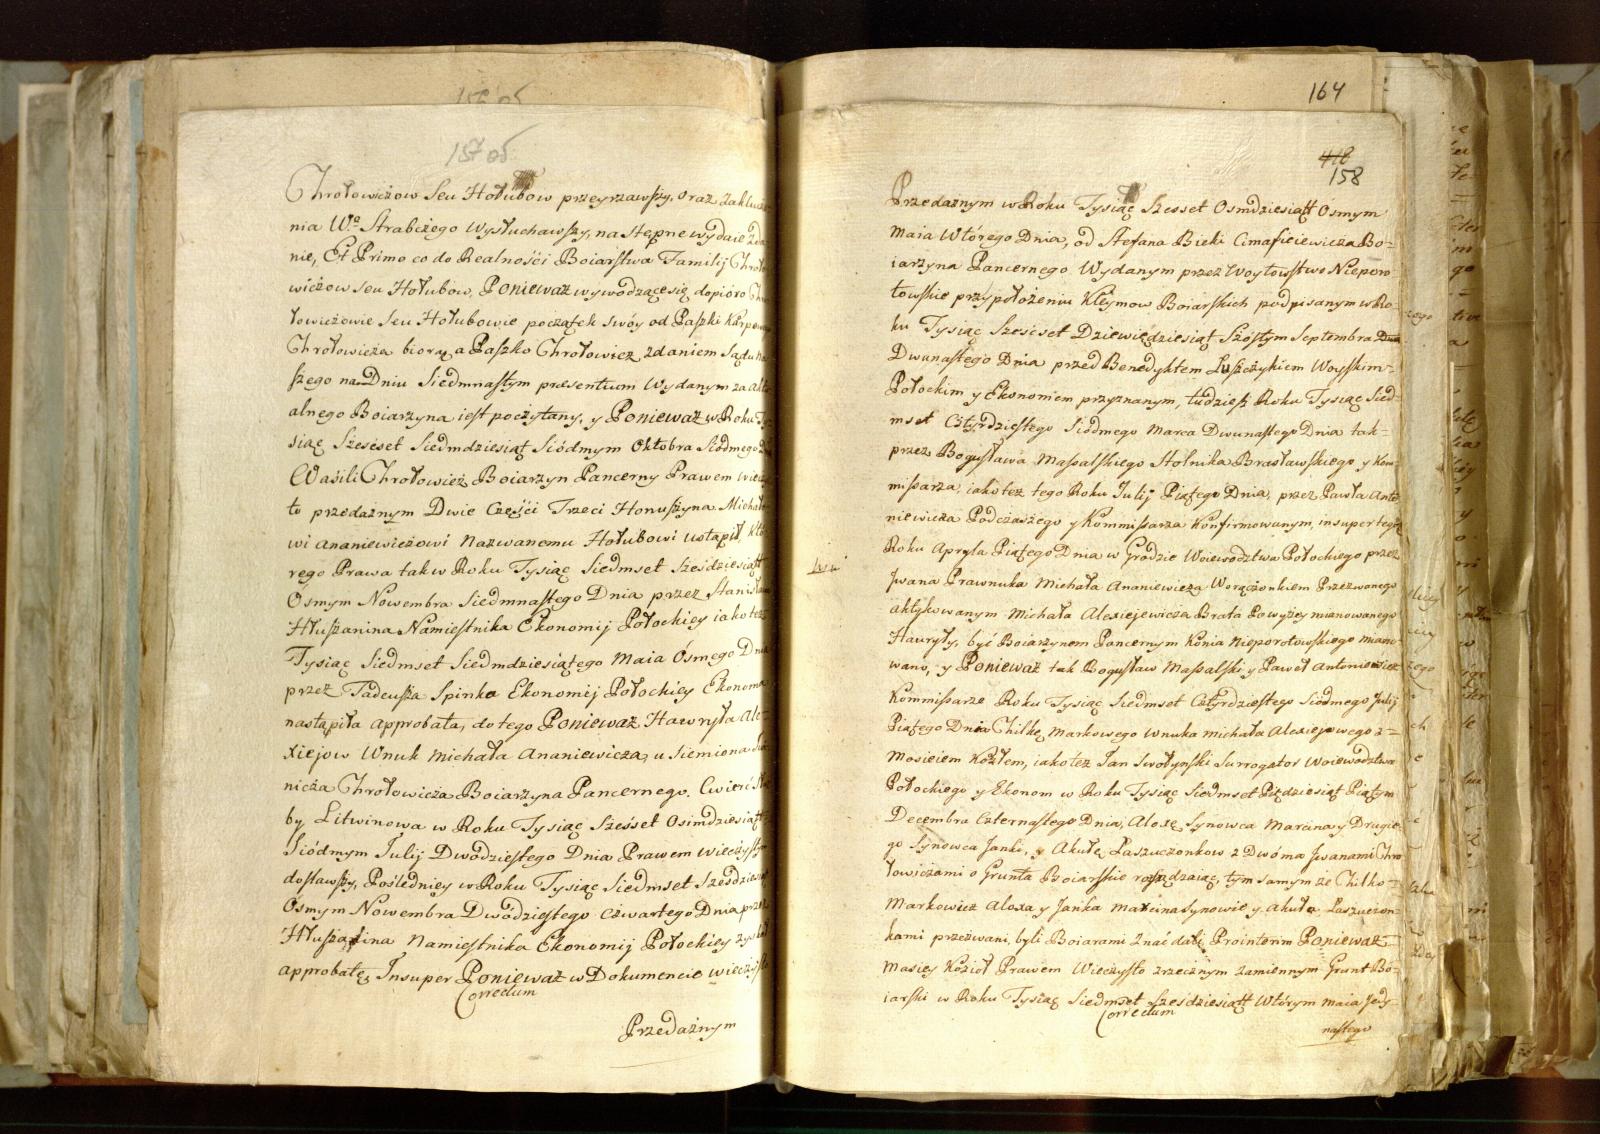 157 об
Chrołowiczow Seu Hołubow przeyrzawszy, oraz Zaklucze-
nia Wo Strabczego Wysłuchawszy, nastempne wydaie Zda
nie, Et Primo co do Realności Boiarstwa Familij Chroło
wiczow seu Hołubow, Ponieważ wywodzące się dopióro Chro
łowiczowie Seu Hołubowie początek swóy od Paszki Karpowi
Chrołowicza biorą, a Paszko Chrołowicz zdaniem Sądu Na
szego na Dniu Siedmnastym præsentium Wydanym za Aktu
alnego Boiarzyna iest poczytany, y Ponieważ w Roku Ty
siąc Szescset Siedmdziesiąt Siódmym Oktobra Siódmego
Wasili Chrołowicz Boiarzyn Pancerny Prawem wieczy
to przedażnym Dwie Części Trzeci Honuszyna Michało
wi Ananiewiczowi Nazwanemu Hołubowi ustąpił, któ
rego Prawa tak w Roku Tysiąc Siedmset Sześdziesiątt
Osmym Nowembra Siedmnastego Dnia przez Stanisława
Hłuszanina Namiestnika Ekonomij Połockiey iako też
Tysiąc Siedmset Siedmdziesiątego Maia Osmego Dnia
przez Tadeusza Spinka Ekonomij Połockiey Ekonoma
nastąpiła approbata, do tego Ponieważ Hawryła Ale-
xiejow Wnuk Michała Ananiewicza, u Siemiona
nicza Chrołowicza Boiarzyna Pancernego. Cwierć Słu
by Litwinowa w Roku Tysiąc Szeset Osimdziesiątt
Siódmym Julij Dwódziestego Dnia Prawem Wieczystym
dostawszy, Poślednięy w Roku Tysiąc Siedmset Szesdziesiąt
Osmym Nowembra Dwódziestego Czwartego Dnia przez
Hłuszanina Namiestnika Ekonomij Połockiey zyskał
approbatę, Insuper Ponieważ w Dokumencie wieczysto
Correctum
Przedażnym
164
418
158
Przedażnym w Roku Tysiąc Szesset Osmdziesiątt Osmym
Maia Wtórego Dnia, od Stefana Bieki Cimaficiewicza Bo-
iarzyna Pancernego Wydanym przez Woytowstwo Nieporo
towskie przy położeniu Kleymow Boiarskich podpisanym w Ro-
ku Tysiąc Szescset Dziewiędziesiąt Szóstym Septembra
Dwunastego Dnia przed Benedyktem Łuszczykiem Woyskim
Połockim y Ekonomem przyznanym, tudziesz Roku Tysiąc Sied-
mset Cztyrdziestego Siódmego Marca Dwunastego Dnia tak
przez Bogusława Massalskiego Stolnika Brasławskiego y Kom-
missarza, iako też tego Roku Julij Piątego Dnia, przez Pawła Anto
niewicza Podczaszego y Kommissarza Konfirmowanym, insuper tegoż
Roku Apryla Piątego Dnia w Grodzie Woiewodztwa Połockiego przez
Jwana Prawnuka Michała Ananiewicza Worączonkiem Przezwanego
aktykowanym Michała Alexiejewicza Brata Powyżey mianowanego
Hauryły, być Boiarzynem Pancernym Konia Nieporotowskiego miano
wano, y Ponieważ tak Bogusław Massalski y Paweł Antoniewicz
Kommissarze Roku Tysiąc Siedmset Cztyrdziestego Siódmego Julij
Piątego Dnia Chilkę Markowego Wnuka Michała Alexiejowego z
Mosieiem Kozłem, iako też Jan Swołynski Surrogator Woiewodztwa
Połockiego y Ekonom w Roku Tysiąc Siedmset Pięćdziesiąt Piątym
Decembra Czternastego Dnia, Aloxę Synowca Marcina y Drugie-
go Synowca Janki, y Akułę Łaszuczonkow z Dwóma Jwanami Chro
łowiczami o Grunta Boiarskie rozsądzaiąc, tym samym że Chilko
Markowicz Aloxa y Janka Marcina synowie y Akuła Łaszuczon-
kami przezwani, byli Boiarami Znać dali, Prointerim Ponieważ
Masiey Kozioł Prawem Wieczysto zrzecznym zamiennym Grunt Bó-
iarski w Roku Tysiąc Siedmset Szesdziesiątt Wtórym Maia Jedy-
Correctum
nastego